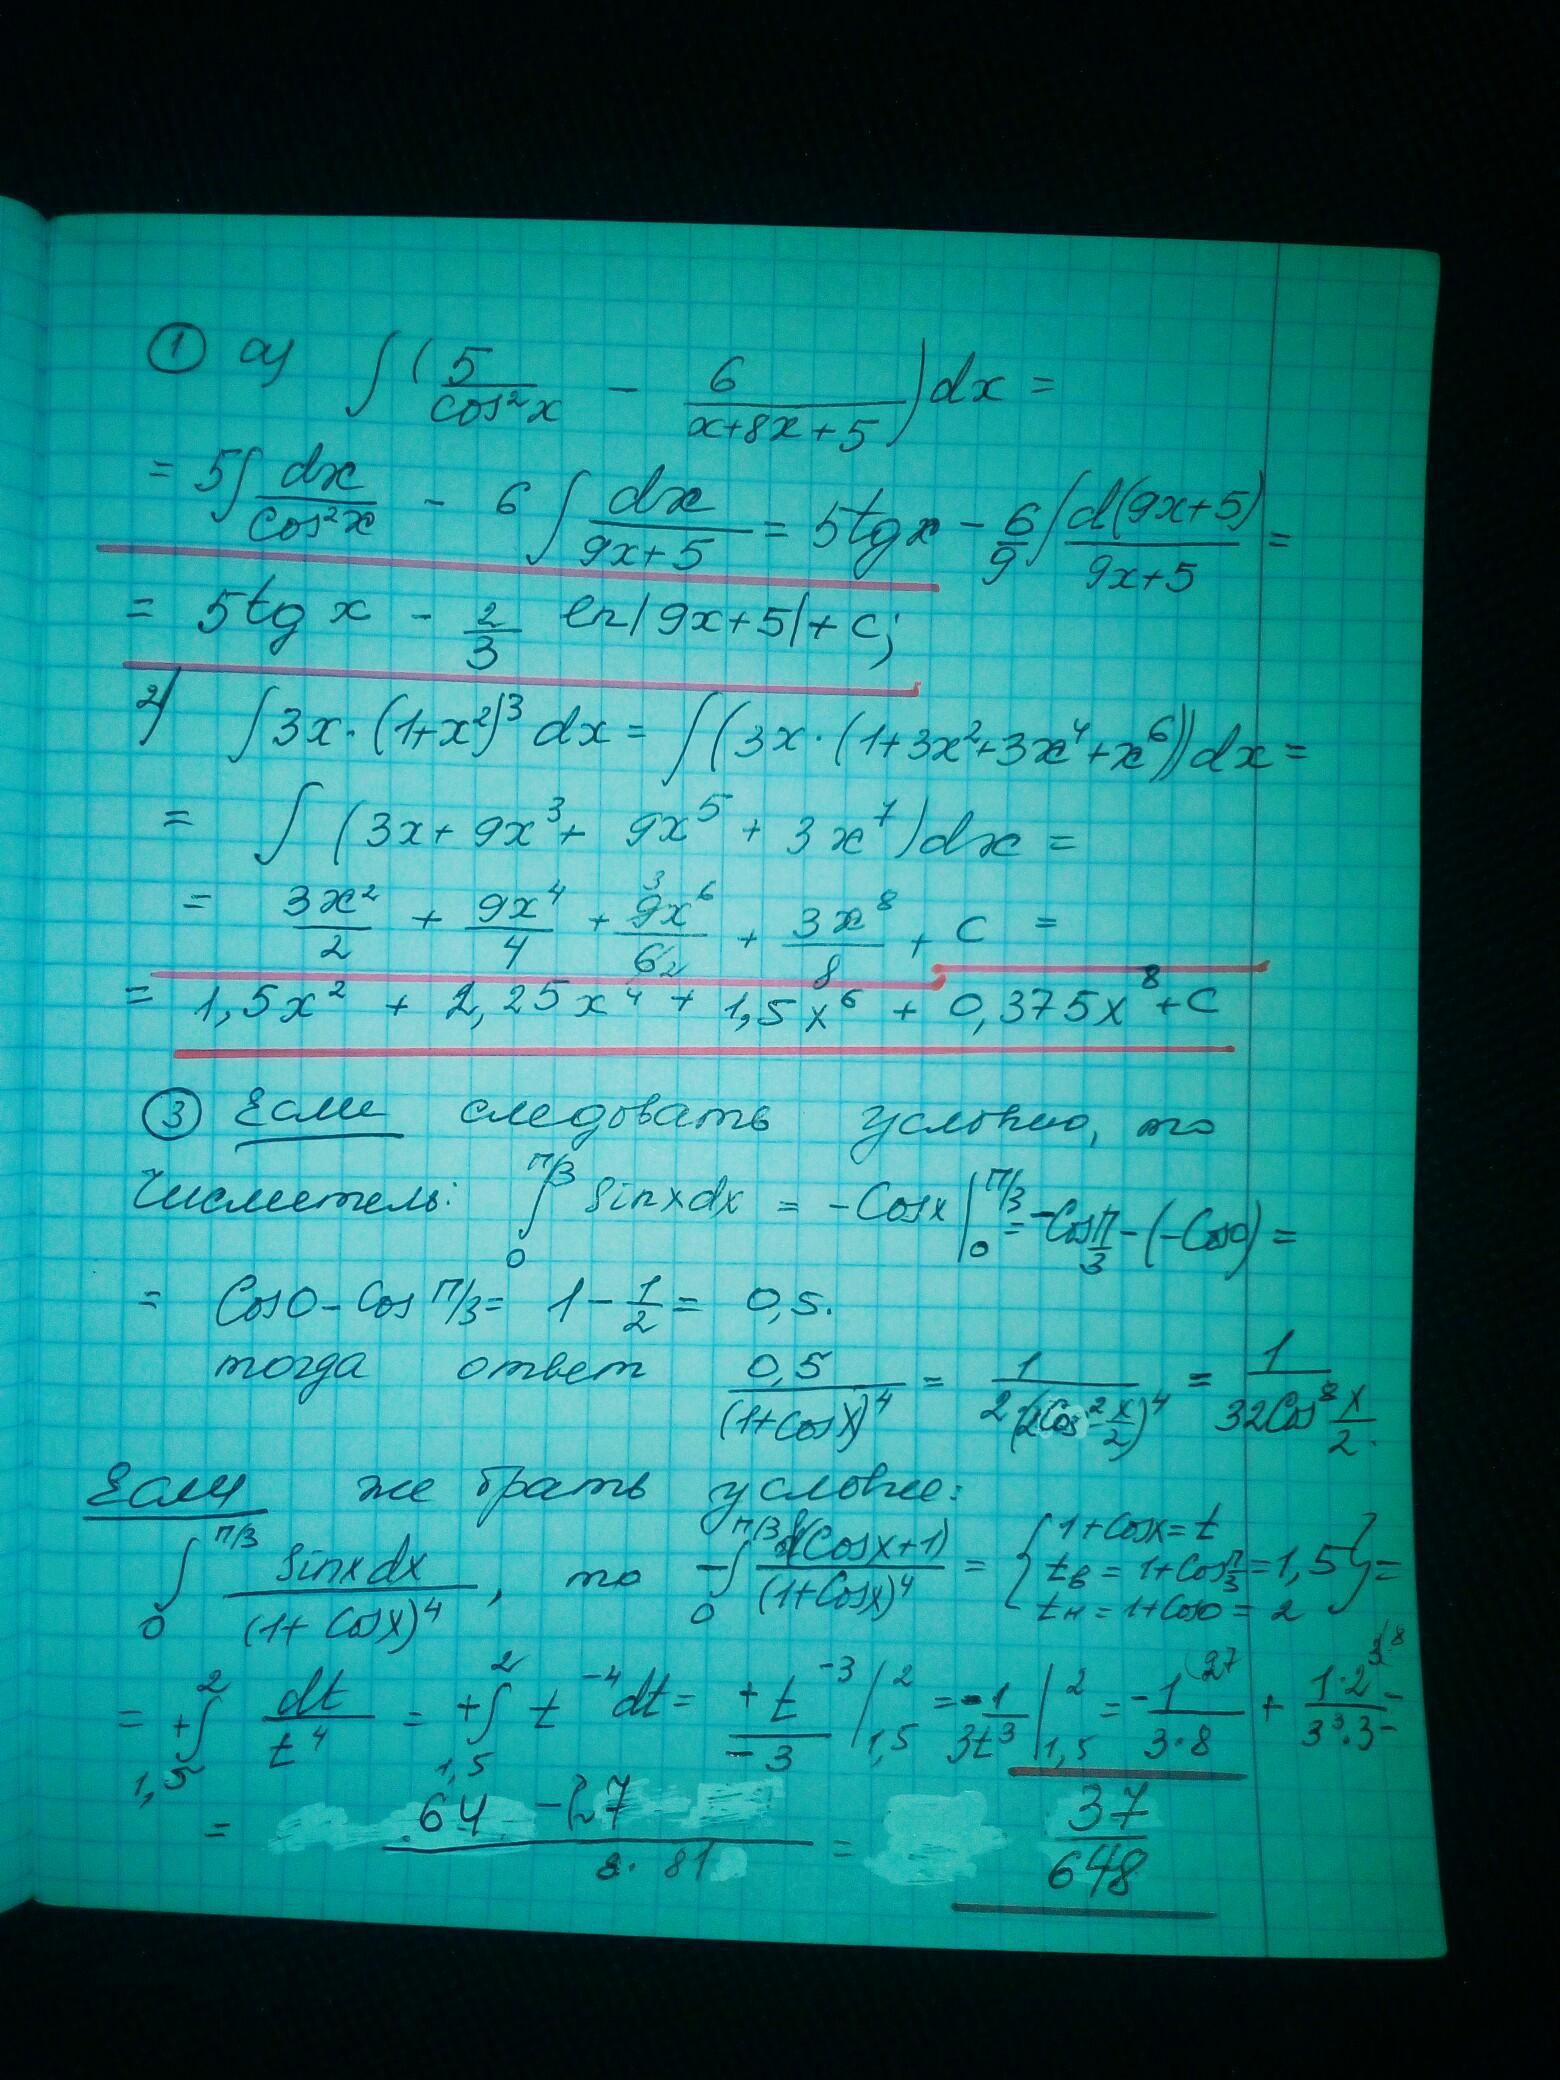 ① а) ∫(5/cos²x − 6/(x+8x+5))dx =
= 5∫dx/cos²x − 6∫dx/(9x+5) = 5tgx − 6/9∫d(9x+5)/(9x+5) =
= 5tg x − 2/3 ln|9x+5|+C;
2) ∫3x·(1+x²)³dx = ∫(3x·(1+3x²+3x⁴+x⁶))dx =
= ∫(3x+9x³+9x⁵+3x⁷)dx =
= 3x²/2 + 9x⁴/4 + 9³x⁶/6₂ + 3x⁸/8 + C =
= 1,5x² + 2,25x⁴ + 1,5x⁶ + 0,375x⁸+C
③ Если следовать условию, то
числитель: ∫₀^(π/3) sinxdx = −Cosx|₀^(π/3) = −Cosπ/3−(−Cos0) =
= Cos0−Cosπ/3 = 1−1/2 = 0,5.
тогда ответ 0,5/(1+Cosx)⁴ = 1/(2(2Cos²x/2)⁴) = 1/(32Cos⁸x/2).
Если же брать условие:
∫₀^(π/3) sinxdx/(1+Cosx)⁴, то −∫₀^(π/3) d(Cosx+1)/(1+Cosx)⁴ = {1+Cosx=t
tв = 1+Cosπ/3=1,5
tн = 1+Cos0 = 2} =
= +∫₁,₅² dt/t⁴ = +∫₁,₅² t⁻⁴dt = +t⁻³/−3|₁,₅² = −1/3t³|₁,₅² = −1/(3·8) (27 + 1·2³/(3³·3) (8 =
= (64 −27)/(8·81) = 37/648